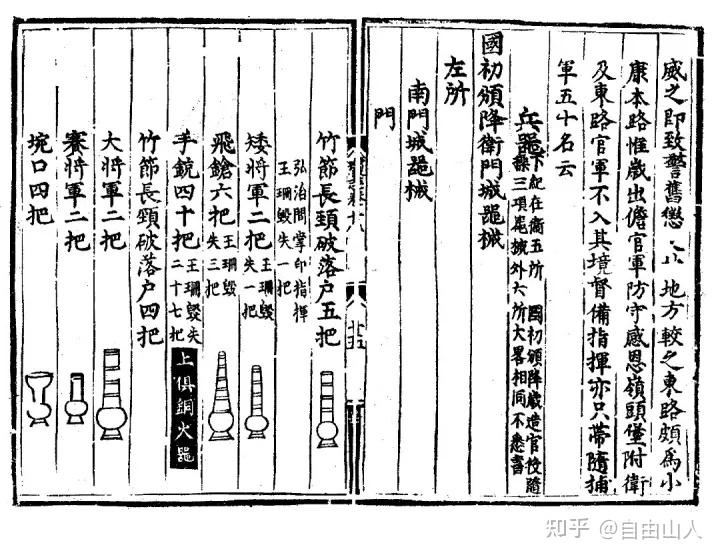 威之即致警舊 地方較之東路頗為小
康本路惟歲出儋官軍防守感恩嶺頭堡附衛
及東路官軍不入其境督備指揮亦只帶隨捕
軍五十名云
兵器 下紀在衛五所 國初頒降歲造官校隨
操三項 外六所大畧相同不悉書
國初頒降衛門城器械
左所
南門城器械
門
十五
竹節長頸破落户五把
弘治間掌印指揮
王珊毀失一把
矮將軍二把 王珊毀失一把
飛鎗六把 王珊毀失三把
手鏡四十把 王珊毀失二十七把 上俱銅火器
竹節長頸破落户四把
大將軍二把
賽將軍二把
埦口四把
知乎 @自由山人